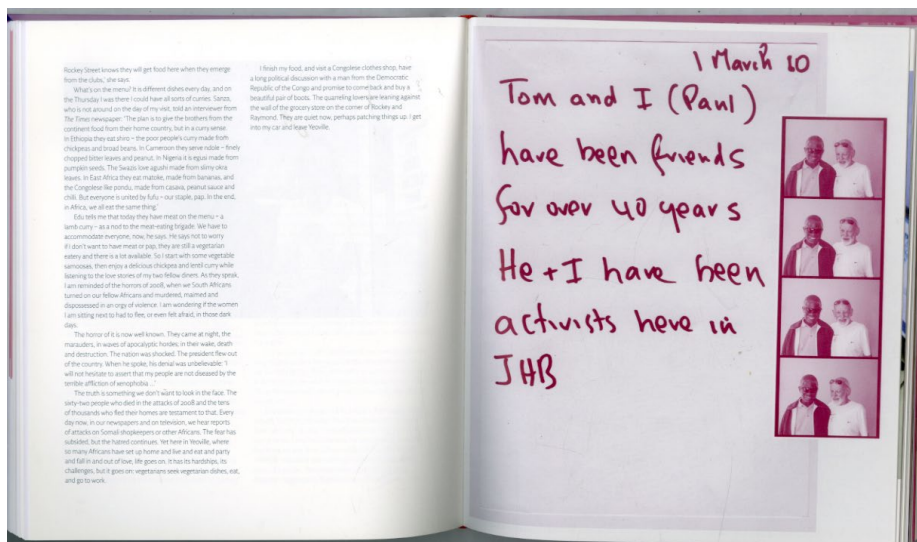 Rockey Street knows they will get food here when they emerge
from the clubs,' she says.
What's on the menu? It is different dishes every day, and on
the Thursday I was there I could have all sorts of curries. Sanza,
who is not around on the day of my visit, told an interviewer from
The Times newspaper: 'The plan is to give the brothers from the
continent food from their home country, but in a curry sense.
In Ethiopia they eat shiro – the poor people's curry made from
chickpeas and broad beans. In Cameroon they serve ndole – finely
chopped bitter leaves and peanut. In Nigeria it is egusi made from
pumpkin seeds. The Swazis love agushi made from slimy okra
leaves. In East Africa they eat matoke, made from bananas, and
the Congolese like pondu, made from casava, peanut sauce and
chilli. But everyone is united by fufu – our staple, pap. In the end,
in Africa, we all eat the same thing.'
Edu tells me that today they have meat on the menu – a
lamb curry – as a nod to the meat-eating brigade. We have to
accommodate everyone, now, he says. He says not to worry
if I don't want to have meat or pap, they are still a vegetarian
eatery and there is a lot available. So I start with some vegetable
samoosas, then enjoy a delicious chickpea and lentil curry while
listening to the love stories of my two fellow diners. As they speak,
I am reminded of the horrors of 2008, when we South Africans
turned on our fellow Africans and murdered, maimed and
dispossessed in an orgy of violence. I am wondering if the women
I am sitting next to had to flee, or even felt afraid, in those dark
days.
The horror of it is now well known. They came at night, the
marauders, in waves of apocalyptic hordes, in their wake, death
and destruction. The nation was shocked. The president flew out
of the country. When he spoke, his denial was unbelievable: 'I
will not hesitate to assert that my people are not diseased by the
terrible affliction of xenophobia ...'
The truth is something we don't want to look in the face. The
sixty-two people who died in the attacks of 2008 and the tens
of thousands who fled their homes are testament to that. Every
day now, in our newspapers and on television, we hear reports
of attacks on Somali shopkeepers or other Africans. The fear has
subsided, but the hatred continues. Yet here in Yeoville, where
so many Africans have set up home and live and eat and party
and fall in and out of love, life goes on. It has its hardships, its
challenges, but it goes on: vegetarians seek vegetarian dishes, eat,
and go to work.
I finish my food, and visit a Congolese clothes shop, have
a long political discussion with a man from the Democratic
Republic of the Congo and promise to come back and buy a
beautiful pair of boots. The quarreling lovers are leaning against
the wall of the grocery store on the corner of Rockey and
Raymond. They are quiet now, perhaps patching things up. I get
into my car and leave Yeoville.
1 March 10
Tom and I (Paul)
have been friends
for over 40 years
He + I have been
activists here in
JHB